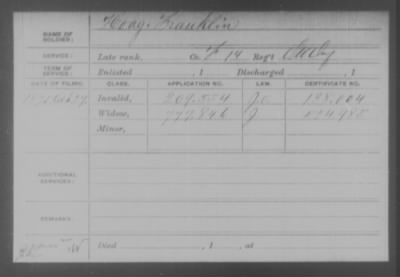 NAME OF SOLDIER: Hoag, Franklin
SERVICE: Late rank, Co. F 14 Reg't
TERM OF SERVICE: Enlisted , 1 Discharged , 1
DATE OF FILING. CLASS. APPLICATION NO. LAW. CERTIFICATE NO.
Invalid, 209.554
Widow, 777.846
Minor,
ADDITIONAL SERVICES:
REMARKS:
Died , 1 , at